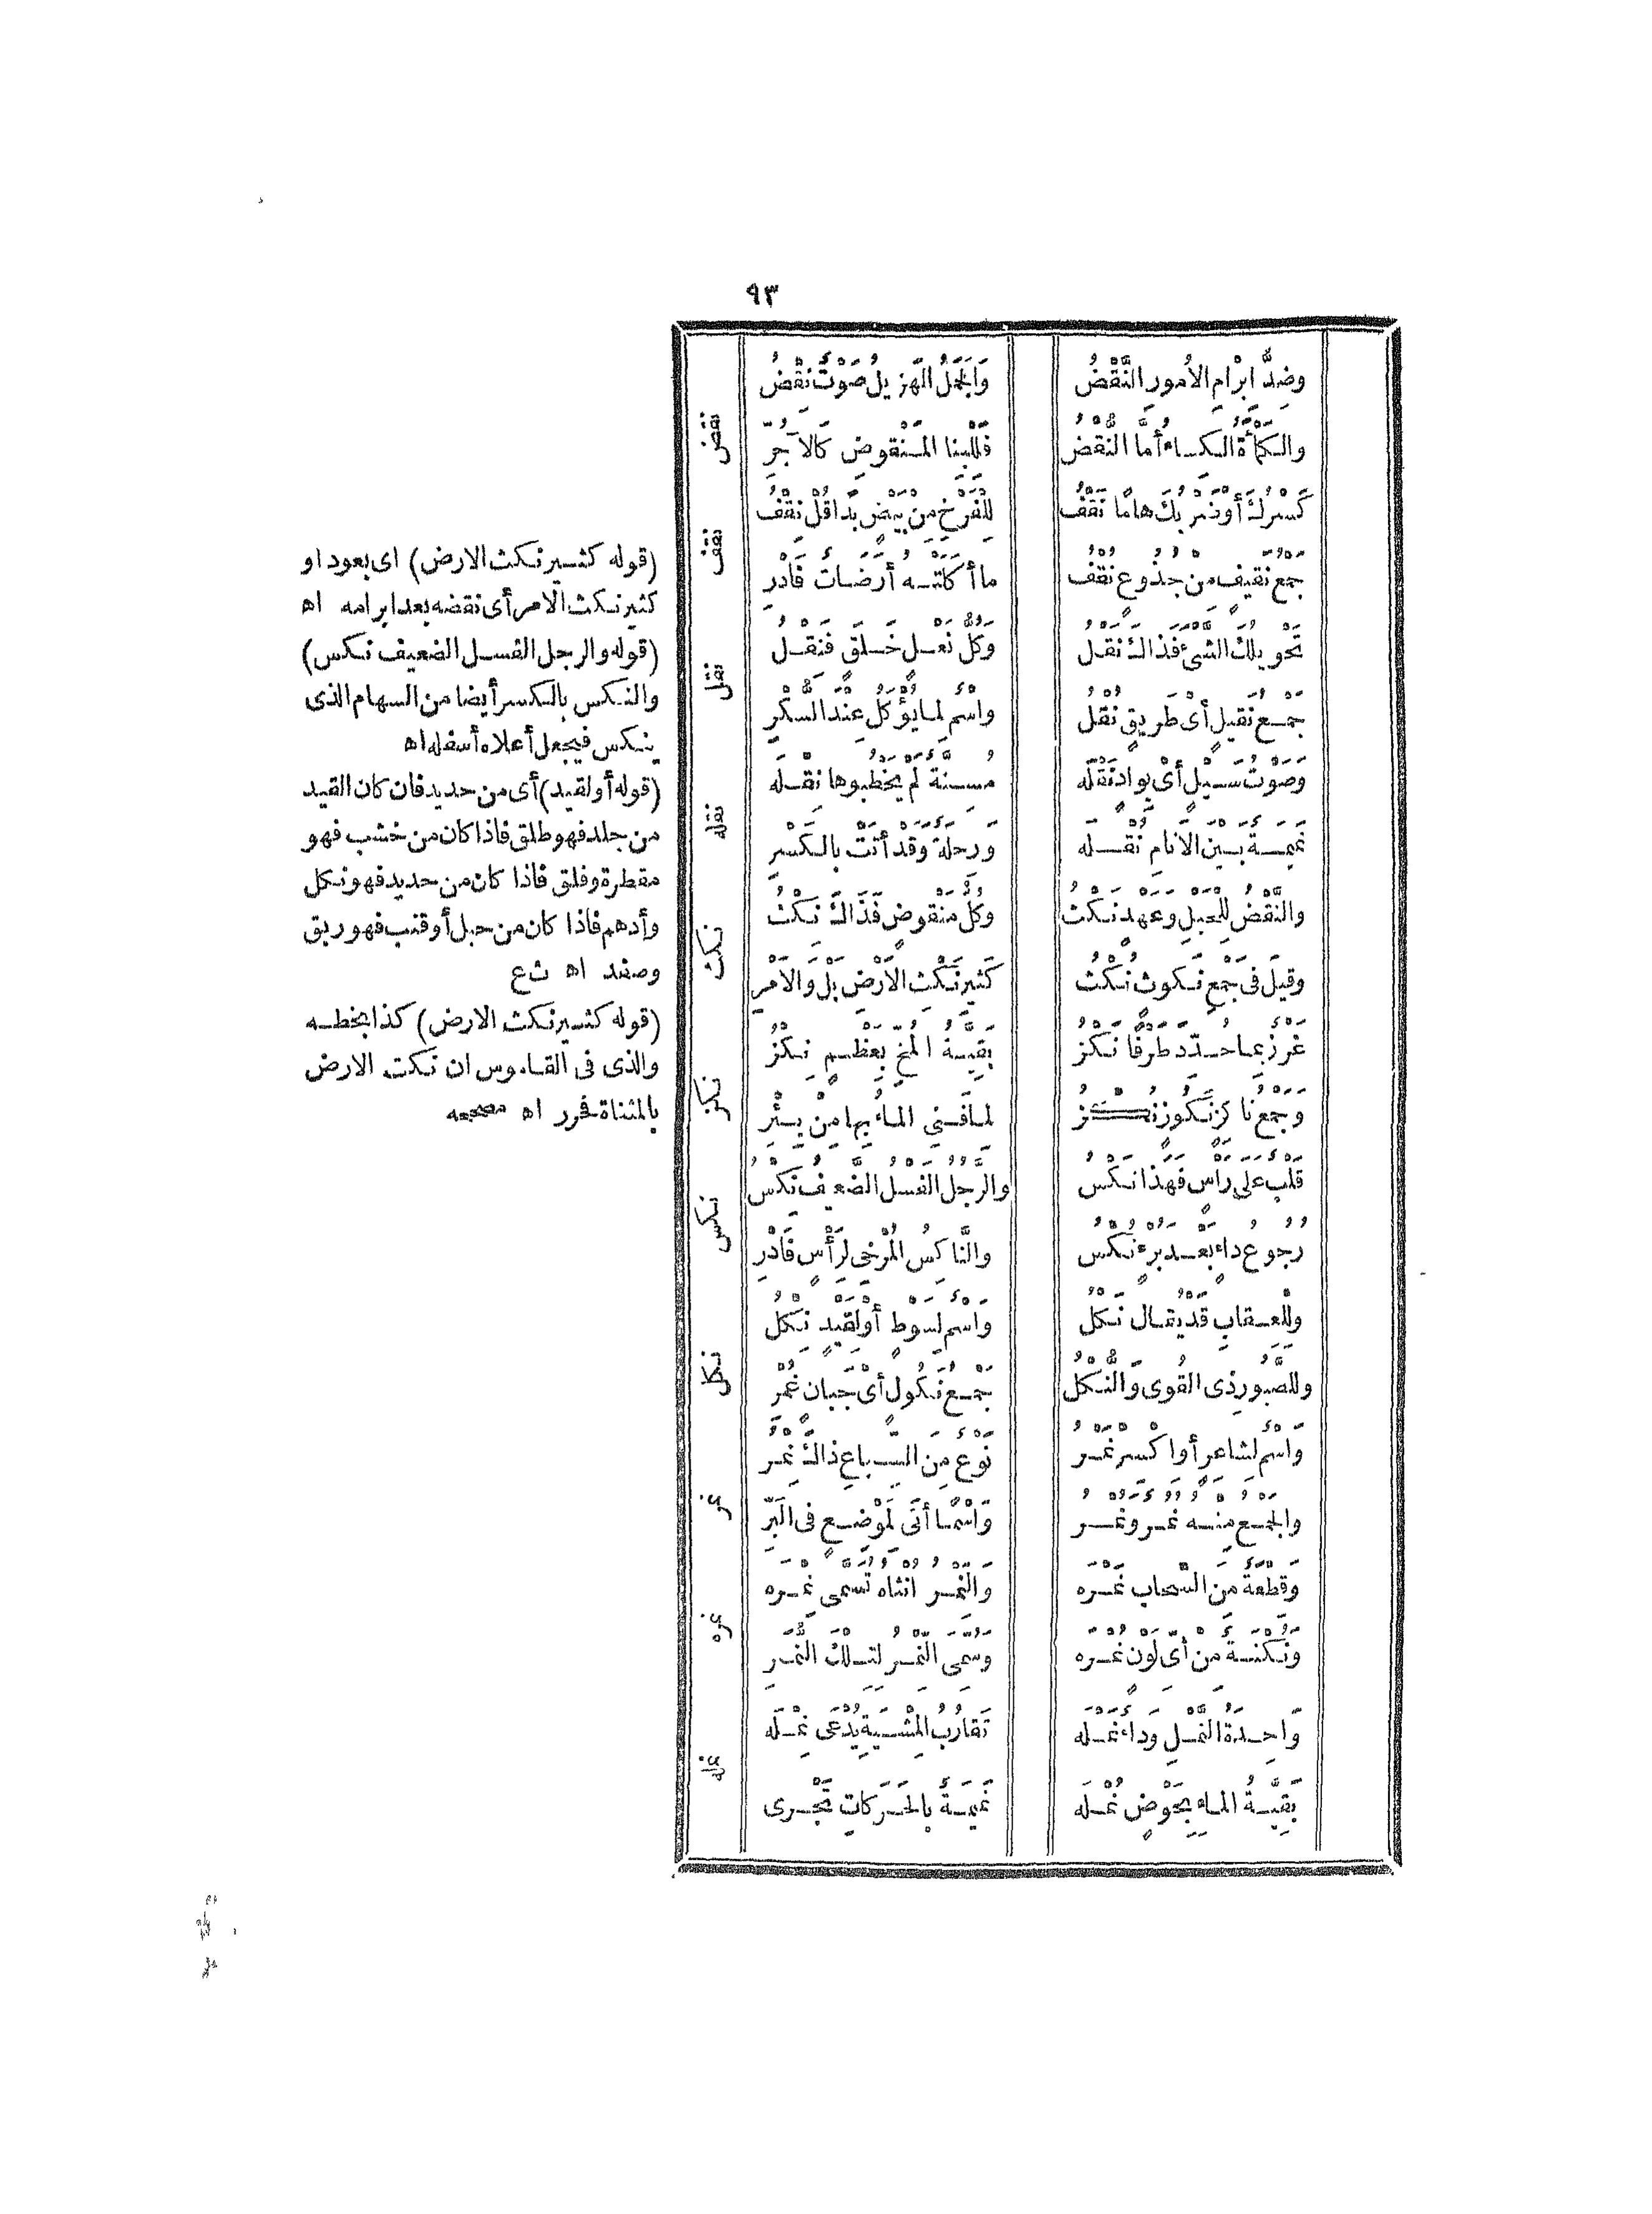 ٩٣
وضد ابرام الامور النقض والجمل الهزيل صوت نقض
نقض
والكمأة الكساء أما النقض فللبنا المنقوض كالآجر
كسرك أو ضربك هاما نقف للفرخ من بيض بدا قل نقف
نقف
جمع نقيف من جذوع نقف ما أكلته أرضات فادر
تحويلك الشئ فذاك نقل وكل نعل خلق فنقل
نقل
جمع نقيل أى طريق نقل واسم لما يؤكل عند السكر
وصوت سيل أى بواد نقله مسنة لم يخطبوها نقله
نقله
نميمة بين الانام نقله ورحلة وقد أتت بالكسر
والنقض للحبل وعهد نكث وكل منقوض فذاك نكث
نكث
وقيل فى جمع نكوث نكث كثير نكث الارض بل والامر
غرز بما حدد طرفا نكز بقية المخ بعظم نكز
نكز
وجمع ناكز نكوز نكز لما فنى الماء بها من بئر
قلب على رأس فهذا نكس والرجل الفسل الضعيف نكس
نكس
رجوع داء بعد برء نكس والناكس المرخى لرأس فادر
وللعقاب قد يقال نكل واسم لسوط أو لقيد نكل
نكل
وللصبور ذى القوى والنكل جمع نكول أى جبان غمر
واسم لشاعر أو اكسر نمر نوع من السباع ذاك نمر
نمر
والجمع منه نمر ونمر واسما أتى لموضع فى البر
وقطعة من السحاب نمره والنمر انثاه تسمى نمره
نمره
ونكتة من أى لون نمره وسمى النمر لتلك النمر
واحدة النمل وداء نمله تقارب المشية يدعى نمله
نمله
بقية الماء بحوض نمله نميمة بالحركات تجرى
(قوله كثير نكث الارض) اى بعود او
كثير نكث الامر أى نقضه بعد ابرامه اه
(قوله والرجل الفسل الضعيف نكس)
والنكس بالكسر أيضا من السهام الذى
ينكس فيجعل أعلاه أسفله اه
(قوله أو لقيد) أى من حديد فان كان القيد
من جلد فهو طلق فاذا كان من خشب فهو
مقطرة وفلق فاذا كان من حديد فهو نكل
وأدهم فاذا كان من حبل أو قنب فهو ربق
وصفد اه ث ع
(قوله كثير نكث الارض) كذا بخطه
والذى فى القاموس ان نكت الارض
بالمثناة فحرر اه مصححه